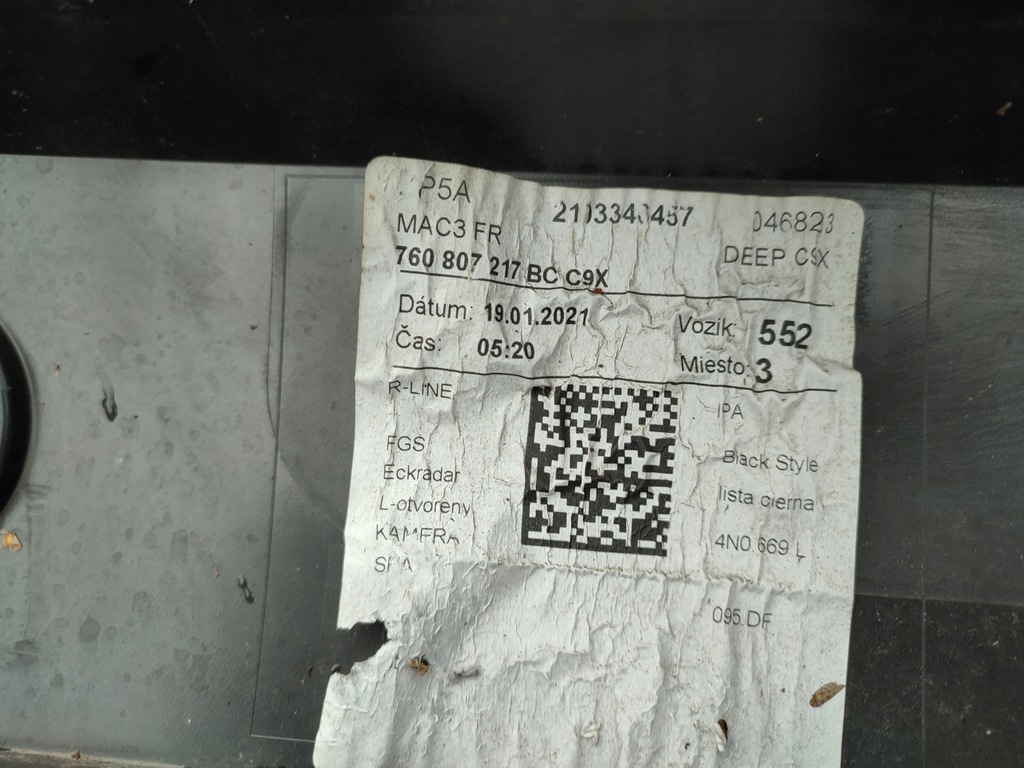 P5A
2103343457
046823
MAC3 FR
DEEP C9X
760 807 217 BC C9X
Dátum: 19.01.2021
Vozik: 552
Čas: 05:20
Miesto: 3
R-LINE
IPA
FGS
Black Style
Eckradar
lista cierna
L-otvoreny
4N0.669 L
KAMERA
095.DF